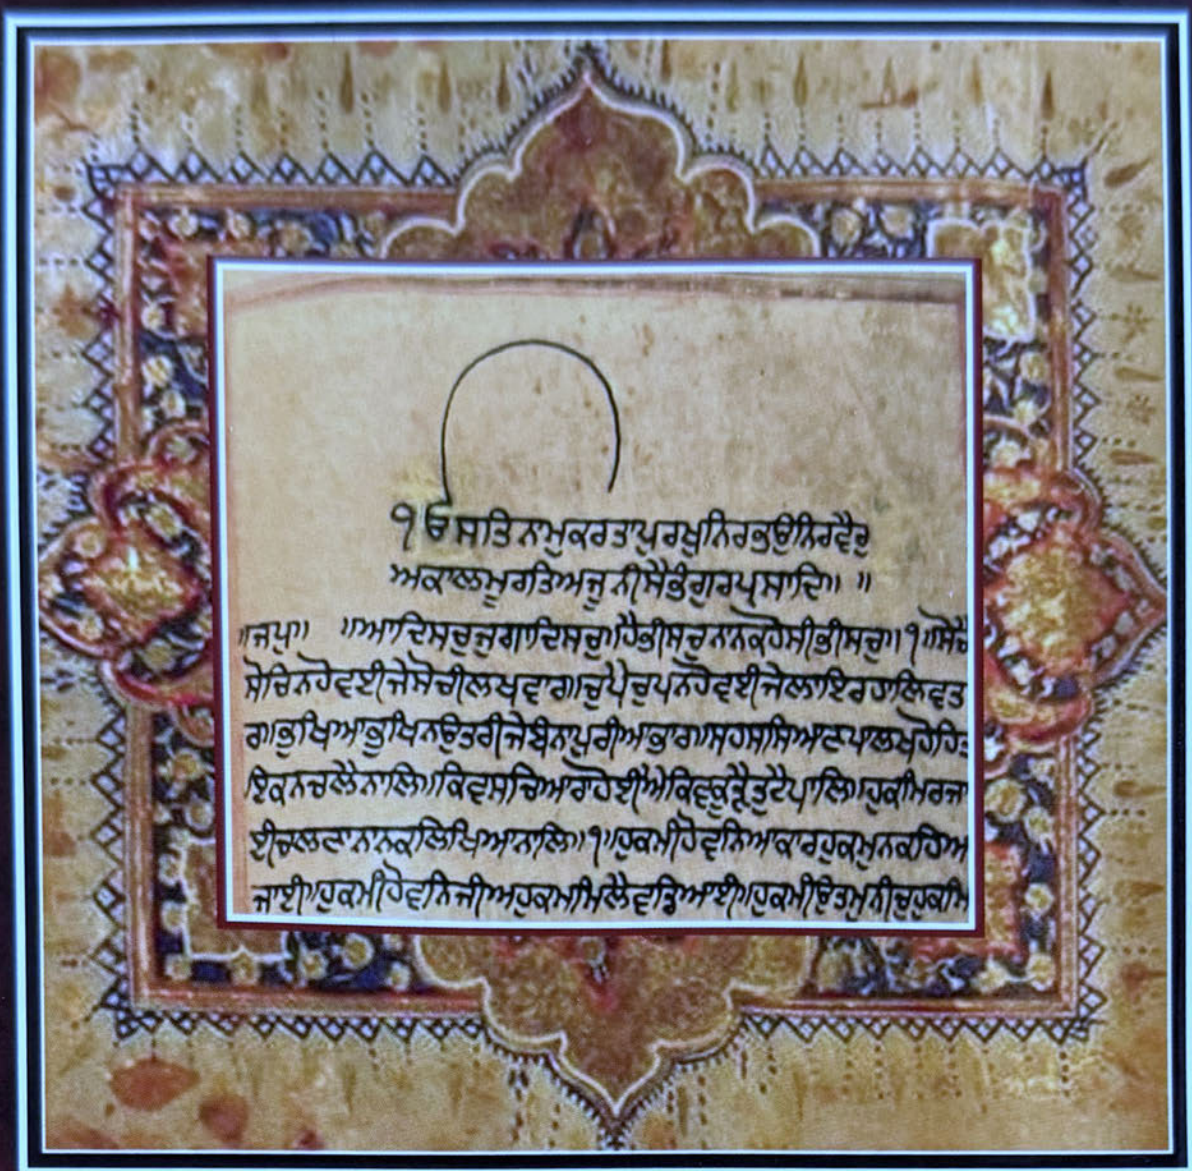 ੧ਓ ਸਤਿ ਨਾਮੁਕਰਤਾਪੁਰਖੁਨਿਰਭਉਨਿਰਵੈਰੁ
ਅਕਾਲਮੂਰਤਿਅਜੂਨੀਸੈਭੰਗੁਰਪ੍ਰਸਾਦਿ॥ ॥
॥ਜਪੁ॥ ॥ਆਦਿਸਚੁਜੁਗਾਦਿਸਚੁ॥ਹੈਭੀਸਚੁਨਾਨਕਹੋਸੀਭੀਸਚੁ॥੧॥ਸੋਚੈ
ਸੋਚਿਨਹੋਵਈਜੇਸੋਚੀਲਖਵਾਰ॥ਚੁਪੈਚੁਪਨਹੋਵਈਜੇਲਾਇਰਹਾਲਿਵਤ
ਰ॥ਭੁਖਿਆਭੁਖਿਨਉਤਰੀਜੇਬੰਨਾਪੁਰੀਆਭਾਰ॥ਸਹਸਸਿਆਣਪਾਲਖਹੋਹਿਤ
ਇਕਨਚਲੈਨਾਲਿ॥ਕਿਵਸਚਿਆਰਾਹੋਈਐਕਿਵਕੂੜੈਤੁਟੈਪਾਲਿ॥ਹੁਕਮਿਰਜਾ
ਈਚਲਣਾਨਾਨਕਲਿਖਿਆਨਾਲਿ॥੧॥ਹੁਕਮੀਹੋਵਨਿਆਕਾਰਹੁਕਮੁਨਕਹਿਆ
ਜਾਈ॥ਹੁਕਮੀਹੋਵਨਿਜੀਅਹੁਕਮਿਮਿਲੈਵਡਿਆਈ॥ਹੁਕਮੀਉਤਮੁਨੀਚੁਹੁਕਮਿ